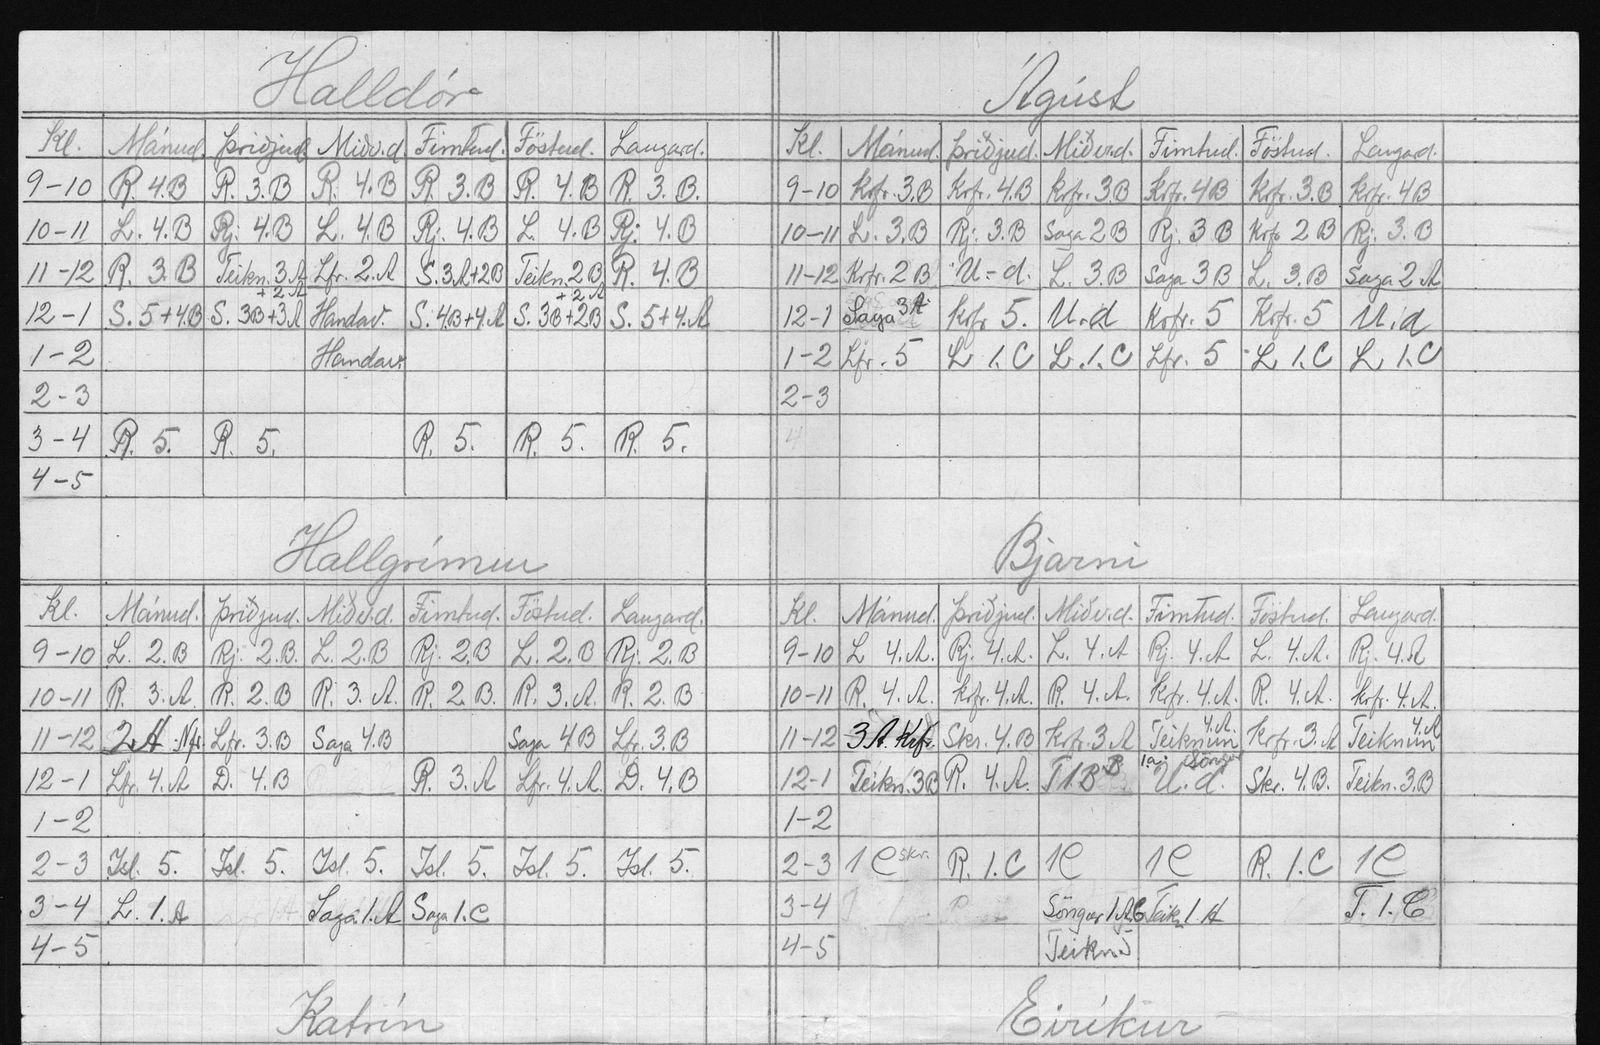 Halldór
Kl. Mánud. Þriðjud. Miðv.d. Fimtud. Föstud. Laugard.
9-10 R. 4.B R. 3.B R. 4.B R. 3.B R. 4.B R. 3.B.
10-11 L. 4.B Rj. 4.B L. 4.B Rj. 4.B L. 4.B Rj. 4.B
11-12 R. 3.B Teikn. 3.A + 2.A Lfr. 2.A S. 3.A+2B Teikn. 2.B + 2.A R. 4.B
12-1 S. 5+4.B S. 3B+3A Handav. S. 4.B+4.A S. 3B+2B S. 5+4.A
1-2 Handav.
2-3
3-4 R. 5. R. 5. R. 5. R. 5. R. 5.
4-5
Ágúst
Kl. Mánud. Þriðjud. Miðv.d. Fimtud. Föstud. Laugard.
9-10 Krfr. 3.B Krfr. 4B Krfr. 3B Krfr. 4B Krfr. 3B Krfr. 4B
10-11 L. 3.B Rj. 3.B Saga 2B Rj. 3B Krfr 2B Rj. 3.B
11-12 Krfr. 2B U-d. L. 3.B Saga 3B L. 3.B Saga 2.A
12-1 Saga 3A Krfr 5. U.d Krfr. 5 Krfr. 5 U.d
1-2 Lfr. 5 L 1.C L. 1.C Lfr. 5 L 1.C L 1.C
2-3
4
Hallgrímur
Kl. Mánud. Þriðjud. Miðv.d. Fimtud. Föstud. Laugard.
9-10 L. 2.B Rj. 2.B. L. 2.B Rj. 2.B L. 2.B Rj. 2.B
10-11 R. 3.A R. 2.B R. 3.A. R. 2.B. R. 3.A. R. 2.B
11-12 2.A Nfr. Lfr. 3.B Saga 4.B Saga 4B Lfr. 3.B
12-1 Lfr. 4.A D. 4.B R. 3.A Lfr. 4.A D. 4.B
1-2
2-3 Ísl. 5. Ísl. 5. Ísl. 5. Ísl. 5. Ísl. 5. Ísl. 5.
3-4 L. 1.A Saga 1.A Saga 1.C
4-5
Bjarni
Kl. Mánud. Þriðjud. Miðv.d. Fimtud. Föstud. Laugard.
9-10 L 4.A. Rj. 4.A. L. 4.A Rj. 4.A L. 4.A. Rj. 4.A
10-11 R. 4.A. Krfr. 4.A. R. 4.A. Krfr. 4.A. R. 4.A. Krfr. 4.A.
11-12 3A. Krfr. Skr. 4.B Krfr. 3.A Teiknun 4.A. Krfr. 3.A Teiknun 4.A
12-1 Teikn. 3B R. 4.A. 1B B U.d. Söngur Skr. 4.B. Teikn. 3.B
1-2
2-3 1C skr. R. 1.C 1C 1C R. 1.C 1C
3-4 Söngur 1.A,C Teikn. 1.A T. 1.C
4-5 Teikn
Katrín
Eiríkur